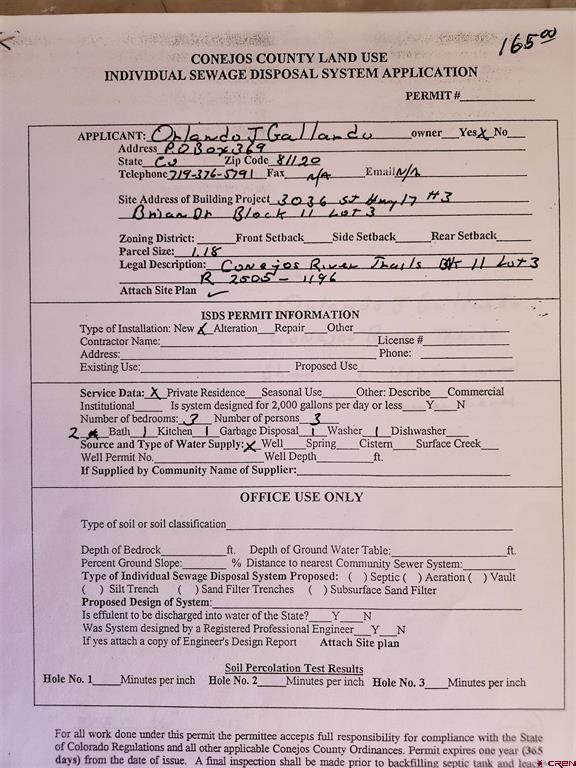 165.00
CONEJOS COUNTY LAND USE
INDIVIDUAL SEWAGE DISPOSAL SYSTEM APPLICATION
PERMIT #____________
APPLICANT: Orlando J Gallando owner Yes X No___
Address P.O Box 369
State Co Zip Code 81120
Telephone 719-376-5791 Fax N/A Email N/A
Site Address of Building Project 3036 St Hwy 17 #3
Brian Dr Block 11 Lot 3
Zoning District:______ Front Setback______ Side Setback______ Rear Setback______
Parcel Size: 1.18
Legal Description: Conejos River Trails Bk 11 Lot 3
R 2505-1196
Attach Site Plan ✓
ISDS PERMIT INFORMATION
Type of Installation: New X Alteration____ Repair____ Other____
Contractor Name:____________ License #____________
Address:____________ Phone:____________
Existing Use:____________ Proposed Use____________
Service Data: X Private Residence___ Seasonal Use____ Other: Describe___ Commercial
Institutional____ Is system designed for 2,000 gallons per day or less____Y___N
Number of bedrooms: 3 Number of persons 3
2 Bath 1 Kitchen 1 Garbage Disposal 1 Washer 1 Dishwasher___
Source and Type of Water Supply: X Well____Spring____Cistern____Surface Creek___
Well Permit No.____________ Well Depth____________ft.
If Supplied by Community Name of Supplier:____________
OFFICE USE ONLY
Type of soil or soil classification____________
Depth of Bedrock____________ft. Depth of Ground Water Table:____________ft.
Percent Ground Slope:________ % Distance to nearest Community Sewer System:________
Type of Individual Sewage Disposal System Proposed: ( ) Septic ( ) Aeration ( ) Vault
( ) Silt Trench ( ) Sand Filter Trenches ( ) Subsurface Sand Filter
Proposed Design of System:____________
Is effulent to be discharged into water of the State?____Y____N
Was System designed by a Registered Professional Engineer___Y___N
If yes attach a copy of Engineer's Design Report Attach Site plan
Soil Percolation Test Results
Hole No. 1_____Minutes per inch Hole No. 2_____Minutes per inch Hole No. 3_____Minutes per inch
For all work done under this permit the permittee accepts full responsibility for compliance with the State
of Colorado Regulations and all other applicable Conejos County Ordinances. Permit expires one year (365
days) from the date of issue. A final inspection shall be made prior to backfilling septic tank and
CREN